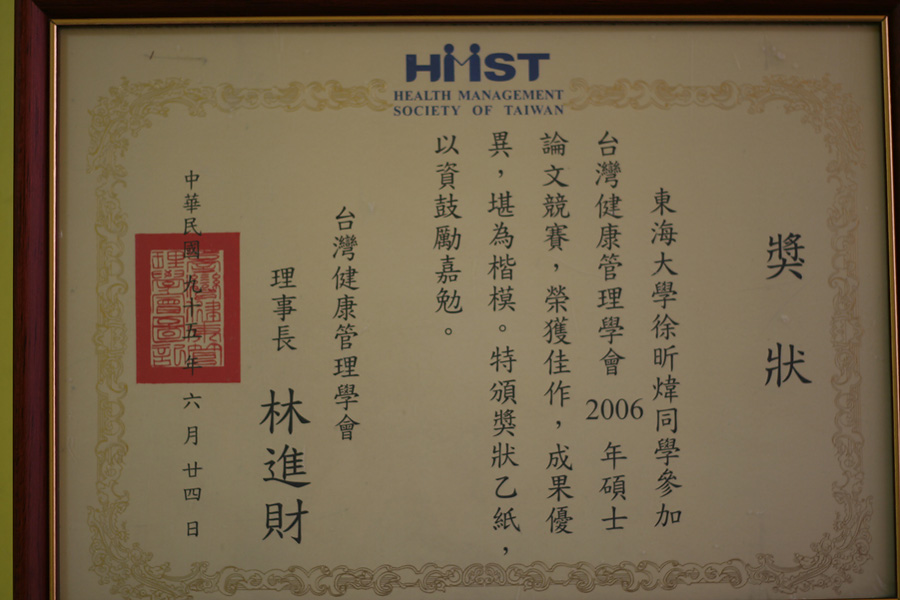 HMST
HEALTH MANAGEMENT
SOCIETY OF TAIWAN
獎狀
東海大學徐昕煒同學參加
台灣健康管理學會2006年碩士
論文競賽，榮獲佳作，成果優
異，堪為楷模。特頒獎狀乙紙，
以資鼓勵嘉勉。
台灣健康管理學會
理事長 林進財
中華民國九十五年六月廿四日